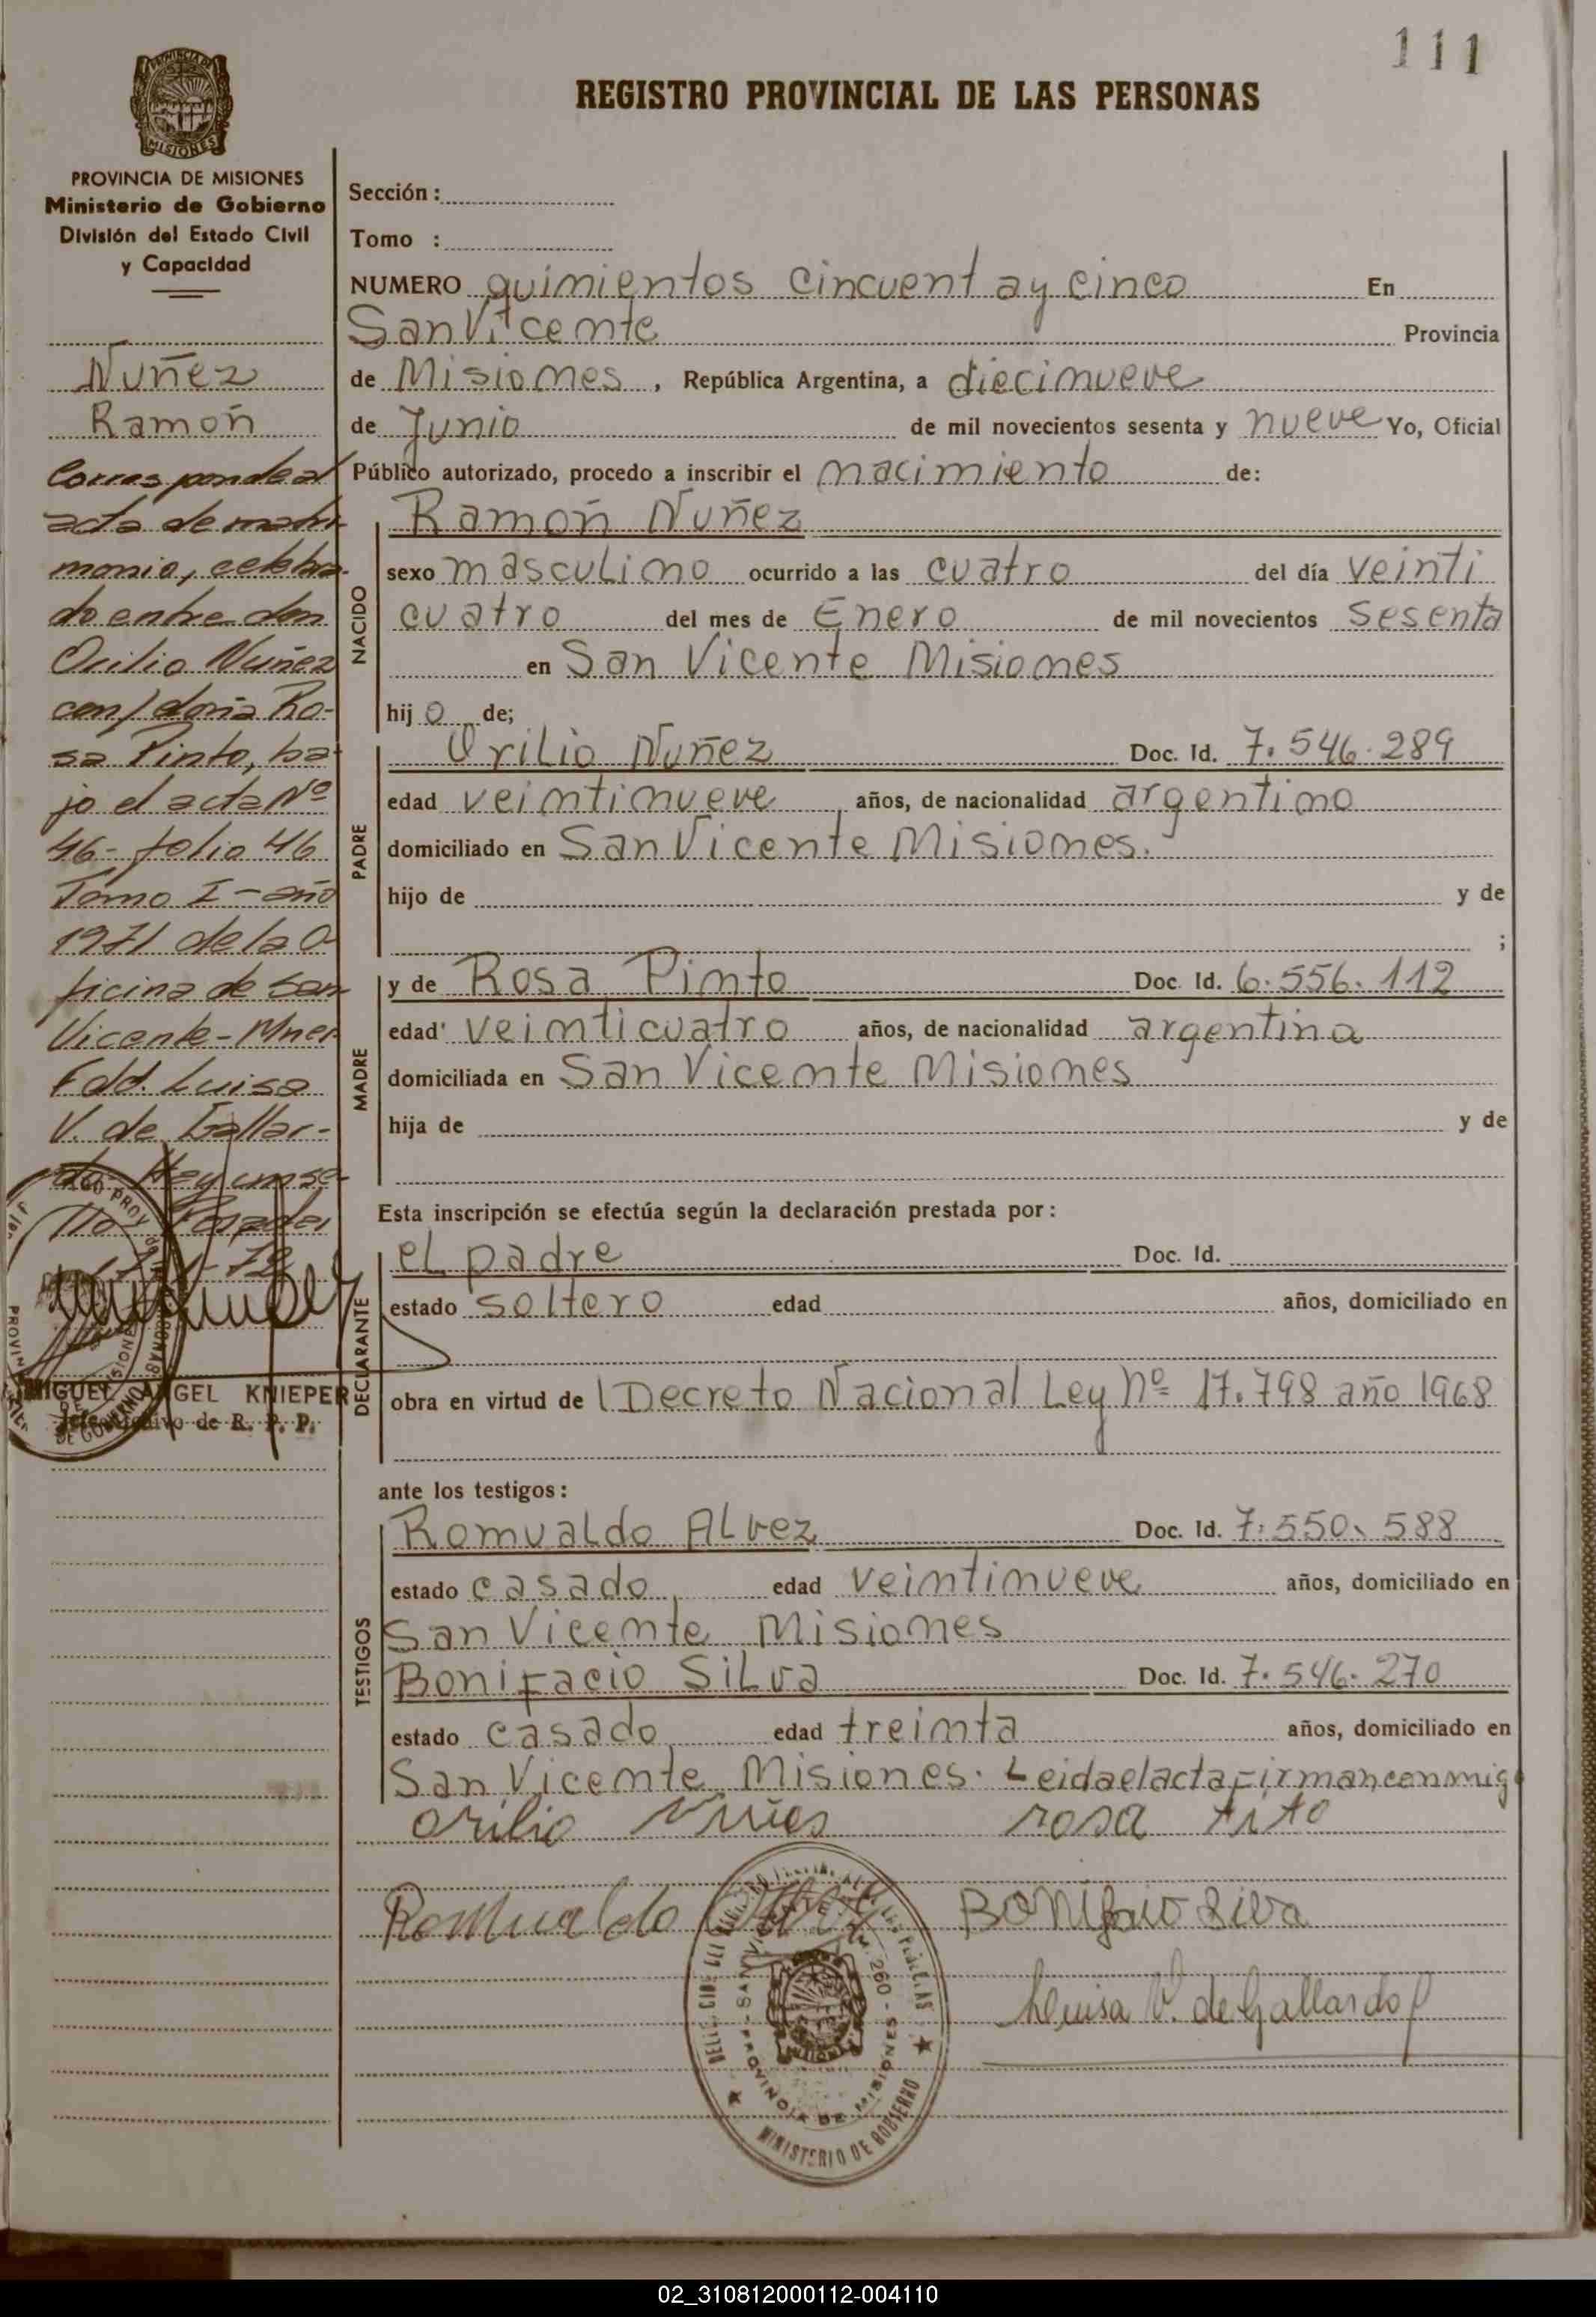 111
REGISTRO PROVINCIAL DE LAS PERSONAS
PROVINCIA DE MISIONES
Ministerio de Gobierno
División del Estado Civil
y Capacidad
Nuñez
Ramoñ
Corresponde al
acta de matri
monio, celebra-
do entre don
Orilio Nuñez
con/doña Ro-
sa Pinto, ba-
jo el acta Nº
46- folio 46
Tomo I - año
1971 de la O
ficina de San
Vicente - Mnes
Fdo. Luisa
V. de Gallar-
do Hay un se-
llo Posadas
MIGUEL ANGEL KNIEPER
Jefe Archivo de R. P. P.
Sección :
Tomo :
NUMERO quimientos cincuent ay cinco En
San Vicente Provincia
de Misiones , República Argentina, a diecinueve
de Junio de mil novecientos sesenta y nueve Yo, Oficial
Público autorizado, procedo a inscribir el nacimiento de:
NACIDO
Ramoñ Nuñez
sexo masculino ocurrido a las cuatro del día veinti
cuatro del mes de Enero de mil novecientos sesenta
en San Vicente Misiones
hij o de;
PADRE
Orilio Nuñez Doc. Id. 7.546.289
edad veintinueve años, de nacionalidad argentino
domiciliado en San Vicente Misiones.
hijo de y de
;
MADRE
y de Rosa Pinto Doc. Id. 6.556.112
edad veinticuatro años, de nacionalidad argentina
domiciliada en San Vicente Misiones
hija de y de
Esta inscripción se efectúa según la declaración prestada por :
DECLARANTE
el padre Doc. Id.
estado soltero edad años, domiciliado en
obra en virtud de l Decreto Nacional Ley Nº 17.798 año 1968
ante los testigos :
TESTIGOS
Romualdo Alvez Doc. Id. 7.550.588
estado casado edad veintinueve años, domiciliado en
San Vicente Misiones
Bonifacio Silva Doc. Id. 7.546.270
estado casado edad treinta años, domiciliado en
San Vicente Misiones. Leida el acta firman conmigo
orilio Nuñes rosa Pito
Romualdo Bonifacio Silva
Luisa V. de Gallardo
PROVINCIA DE MISIONES
MINISTERIO DE GOBIERNO
02_310812000112-004110